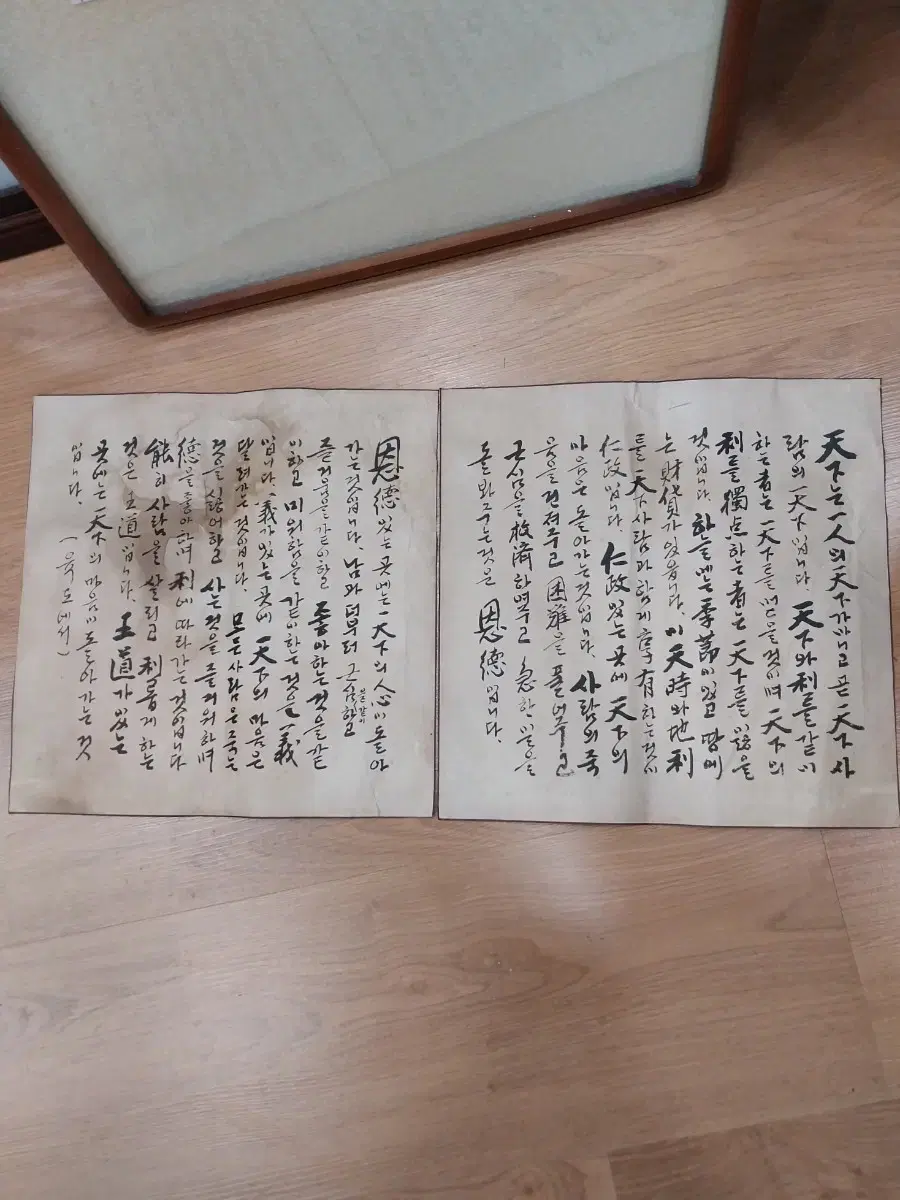 天下는 一人의 天下가 아니고 곧 天下 사
람의 天下입니다. 天下와 利를 같이
하는 者는 天下를 얻을것이며 天下의
利를 獨点하는 者는 天下를 잃을
것입니다. 하늘에는 季節이 있고 땅에
는 財貨가 있읍니다. 이 天時와 地利
를 天下사람과 함게 享有하는것이
仁政입니다. 仁政있는곳에 天下의
마음은 돌아가는것입니다. 사람의 죽
음을 건져주고 困難을 풀어주고
근심을 救済하여주고 急한일을
돌봐주는것은 恩德입니다.
恩德있는곳에는 天下의 人心이 돌아
가는것입니다. 남과 더부러 근심하고
즐거움을 같이하고 좋아하는 것을 같
이하고 미워함을 같이하는 것을 義
입니다. 義가 있는곳에 天下의 마음은
달려가는 것입니다. 모든사람은 죽는
것을 싫어하고 사는것을 즐거워하며
德을 좋아하며 利에 따라가는 것입니다
能히 사람을 살리고 利롭게 하는
것은 王道입니다. 王道가 있는
곳에는 天下의 마음이 돌아가는 것
입니다. (육도에서)